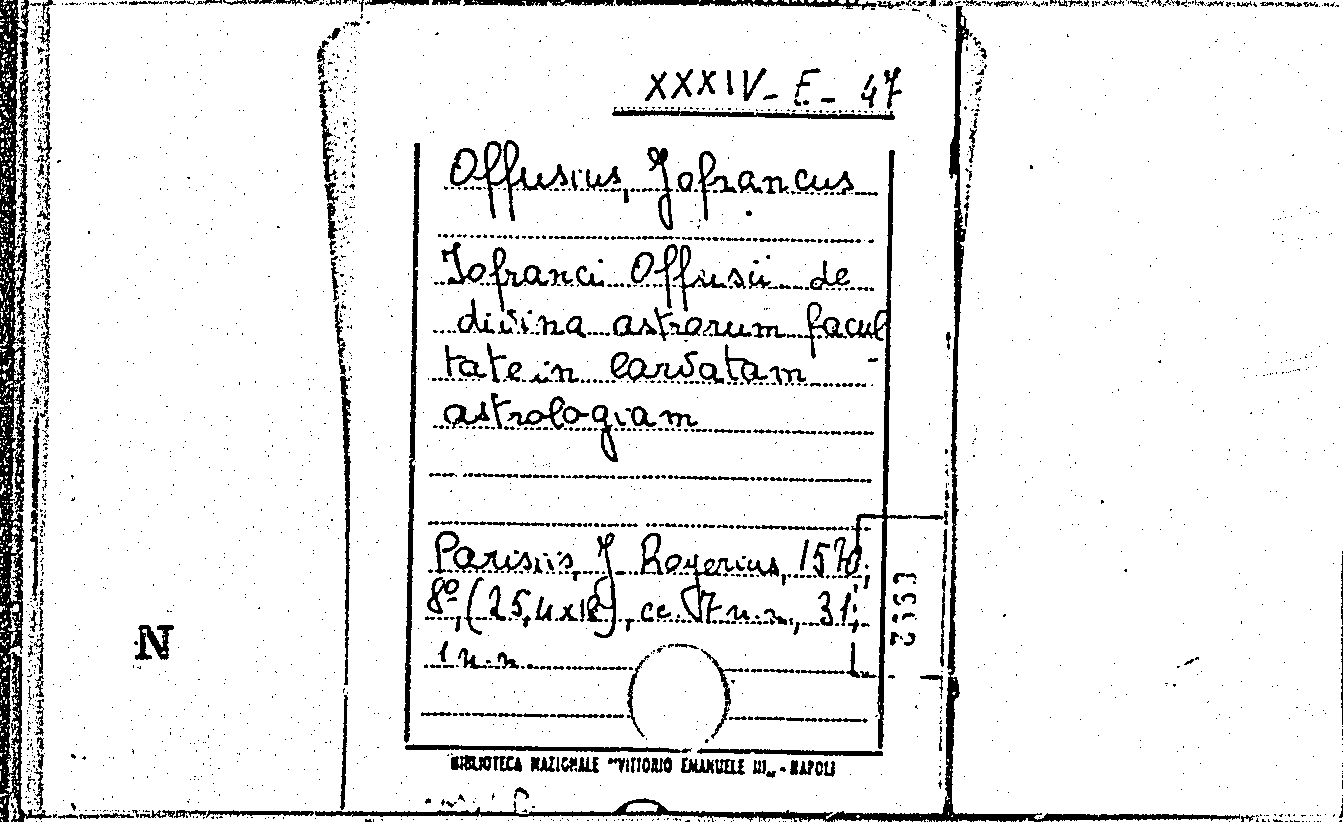 XXXIV - E - 47
Offusius, Jofrancus
Jofranci Offusii de
divina astrorum facul-
tate in larvatam
astrologiam
Parisiis, J Royerius, 1570;
8º, (25,4x18), cc. 7 n.n., 31;
1 n.n.
N
BIBLIOTECA NAZIONALE "VITTORIO EMANUELE III„ - NAPOLI